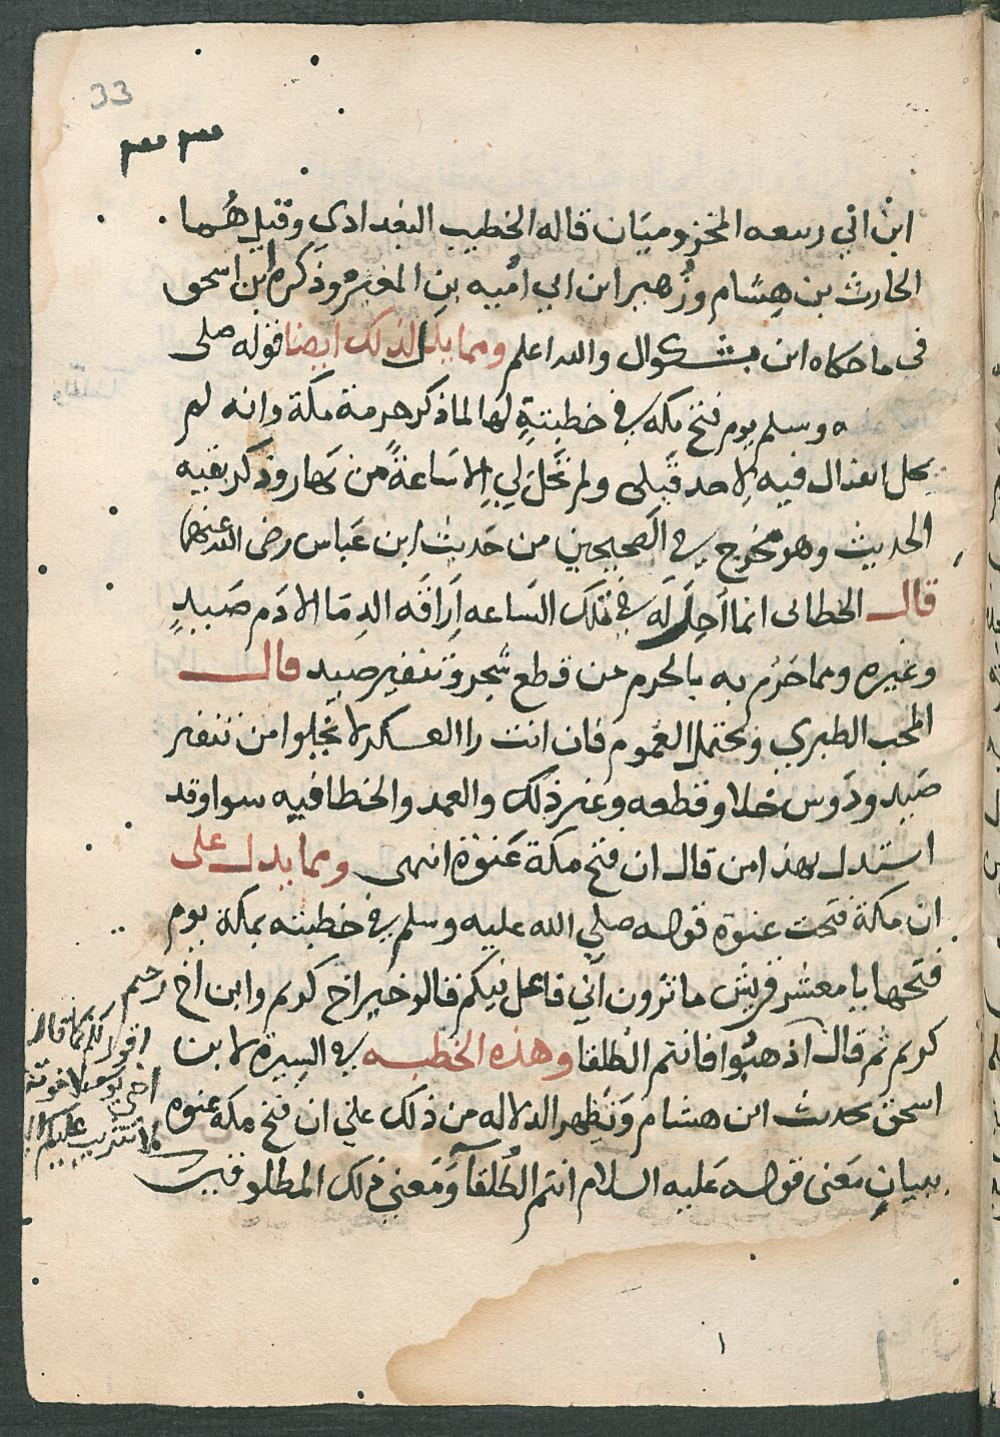 33
٣٣
ابن ابي ربيعه المخزوميان قاله الخطيب البغدادي وقيل هُما
الحارث بن هِشام وزُهير ابن ابي اميه بن المغيره وذكره ابن اسحق
في ما حكاه ابن بشكوال والله اعلم ومما يدل لذلك ايضا قوله صلى
ه وسلم يوم فتح مكه في خطبتةٍ لها لما ذكر حرمة مكة وانه لم
يحل القتال فيه لاحد قَبلى ولم تحَلَ لي الا سَاعةً من نهار وذكر بقيه
الحديث وهو مخرج في الصحيحين من حَديث ابن عَباس رضى الله عنهما
قال الخطابى انما اُحِلَ لَه في تلك السَاعه اِراقه الدِمَا الا دَم صَيدٍ
وغيره ومما حَرُم به بالحرم من قطع شجر وتنفير صيد قال
المحب الطبري ويحتمل العُموم فان انتشار العسكر لا يخلوا من تنفير
صَيد ودَوس خلا وقطعه وغير ذلك والعمد والخطا فيه سوا وقد
استدل بهذا من قال ان فتح مكة عَنوَة انتهى ومما يدل على
ان مكة فتحت عنوة قوله صلي الله عليه وسلم في خطبته بمكة يوم
فتحها يا معشر قريش ما ترون اني فاعل فيكم قالو خير اخ كريم وابن اخ
كريم ثم قال اذهبُوا فانتم الطلقا وهذه الخطبه في السيرة لابن
اسحق تحديث ابن هشام وَتظهر الدلاله من ذلك علي ان فتح مكة عنوه
ببيانِ مَعنى قوله عَليه السلام انتم الطُلقآ وَمَعني ذلك المطلوقين
رحيم
اقول لكم كما قال
اخي يوسف لاخوته
لا تثريب عليكم